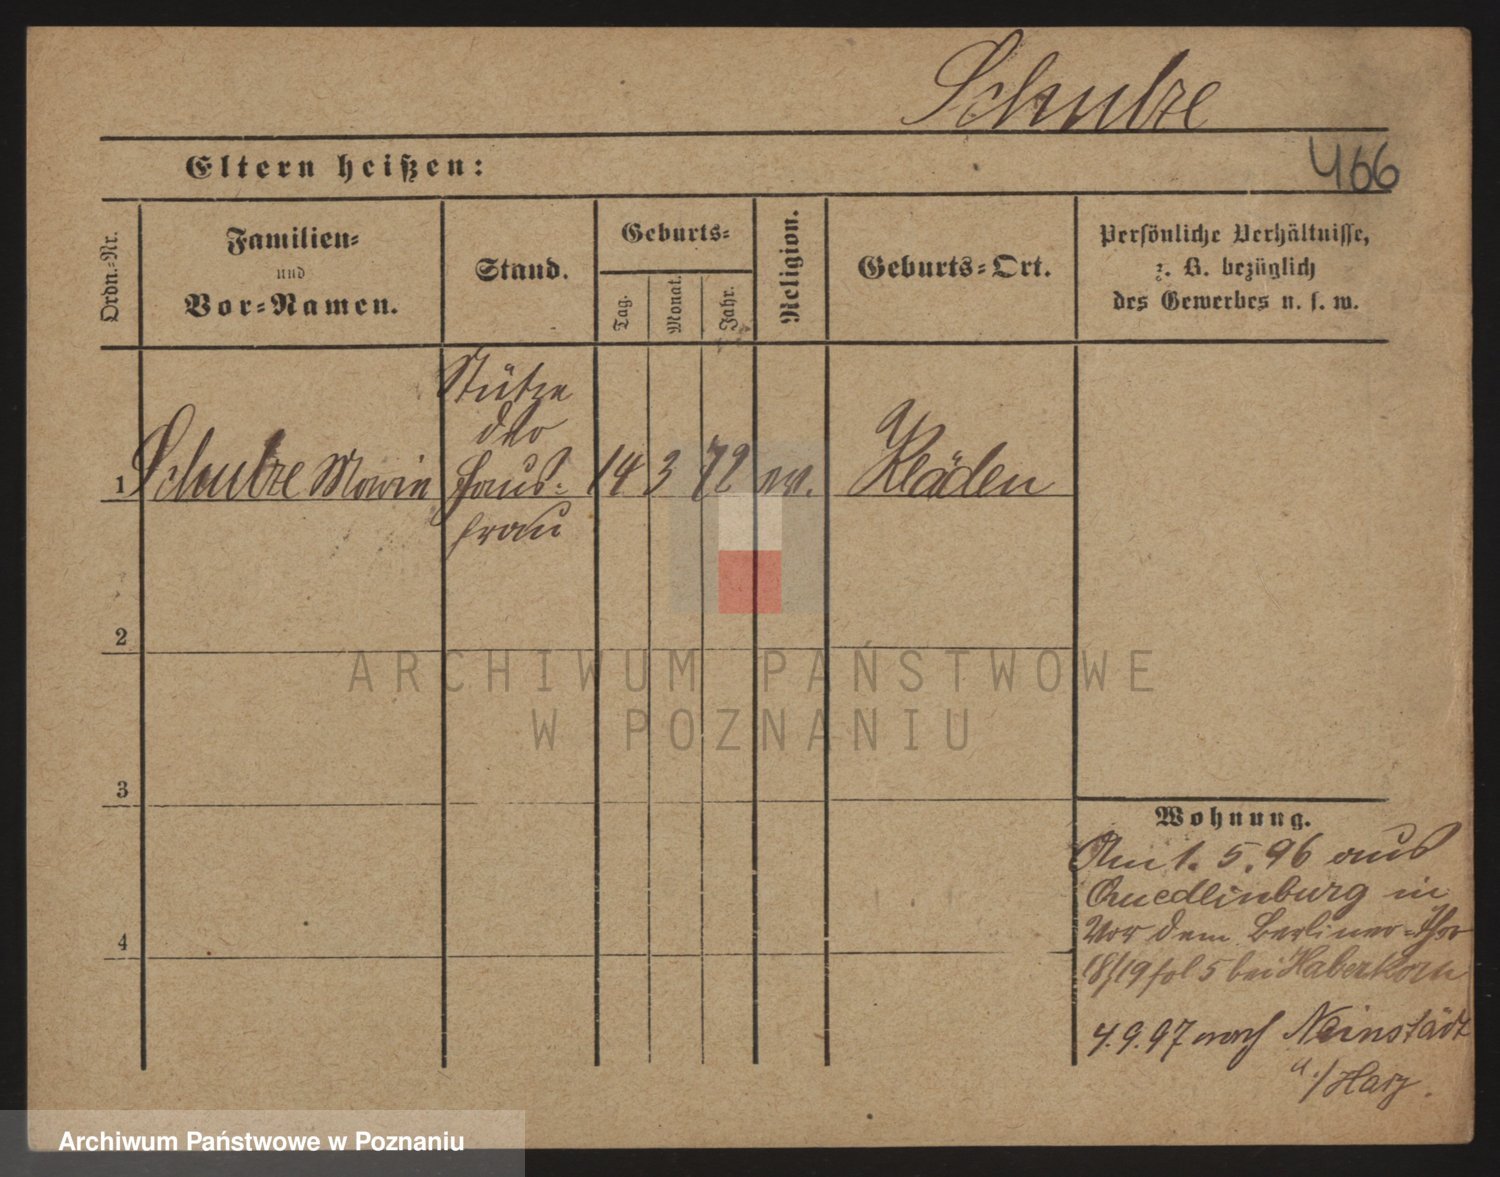 Schulze
466
Eltern heißen:
Ordn.-Nr.
Familien-
und
Vor-Namen.
Stand.
Geburts-
Tag.
Monat.
Jahr.
Religion.
Geburts-Ort.
Persönliche Verhältnisse,
z. B. bezüglich
des Gewerbes u. s. w.
1 Schulze Marie
Stütze
der
Haus-
frau
14 3 72 ev. Kläden
2
3
4
Wohnung.
Am 1. 5. 96 aus
Quedlinburg in
Vor dem Berliner-Thor
18/19 fol 5 bei Haberkorn
4. 9. 97 nach Neinstädt
a./Harz.
ARCHIWUM PAŃSTWOWE
W POZNANIU
Archiwum Państwowe w Poznaniu